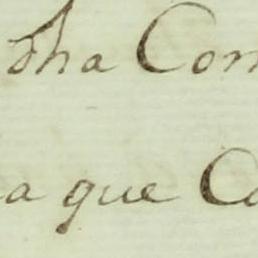 dha Com
a que Co